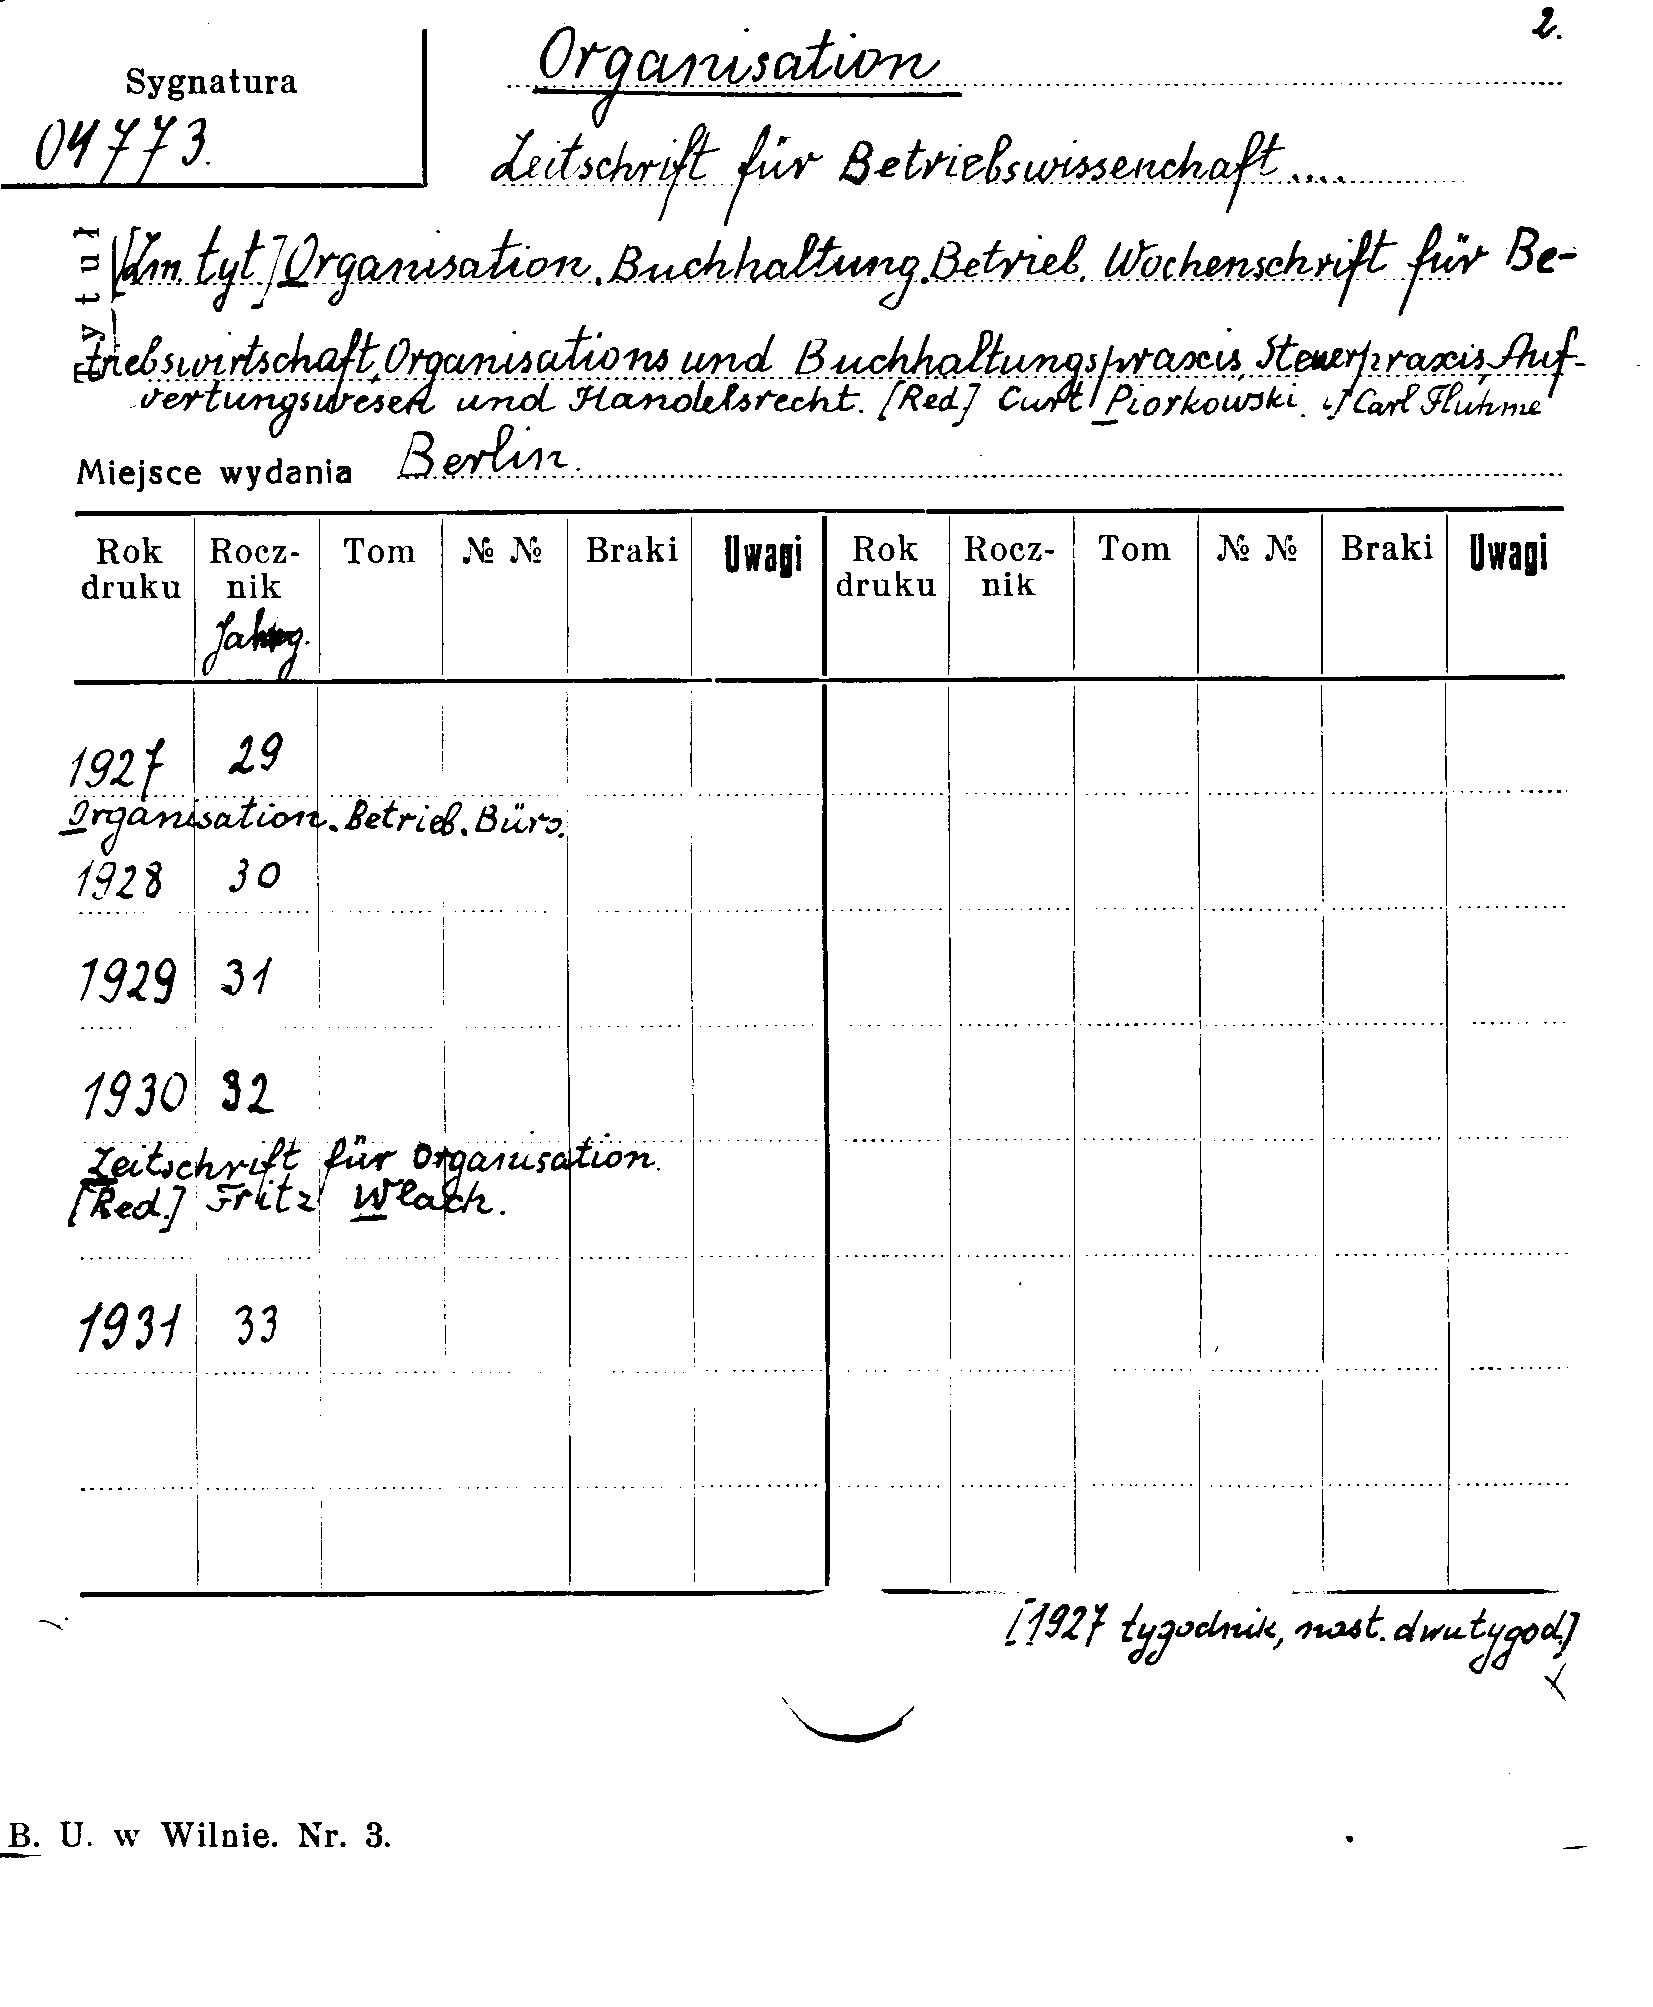 2.
Sygnatura
04773.
Organisation
Zeitschrift für Betriebswissenchaft....
Tytuł
[Zm. tyt] Organisation. Buchhaltung. Betrieb. Wochenschrift für Be-
triebswirtschaft, Organisations und Buchhaltungspraxis, Steuerpraxis, Auf-
vertungswesen und Handelsrecht. [Red] Curt Piorkowski. Carl Fluhme
Miejsce wydania Berlin.
Rok druku Rocz-nik Tom № № Braki Uwagi Rok druku Rocz-nik Tom № № Braki Uwagi
Jahrg.
1927 29
Organisation. Betrieb. Büro.
1928 30
1929 31
1930 32
Zeitschrift für Organisation.
[Red.] Fritz Wlach.
1931 33
[1927 tygodnik, nast. dwutygod.]
B. U. w Wilnie. Nr. 3.